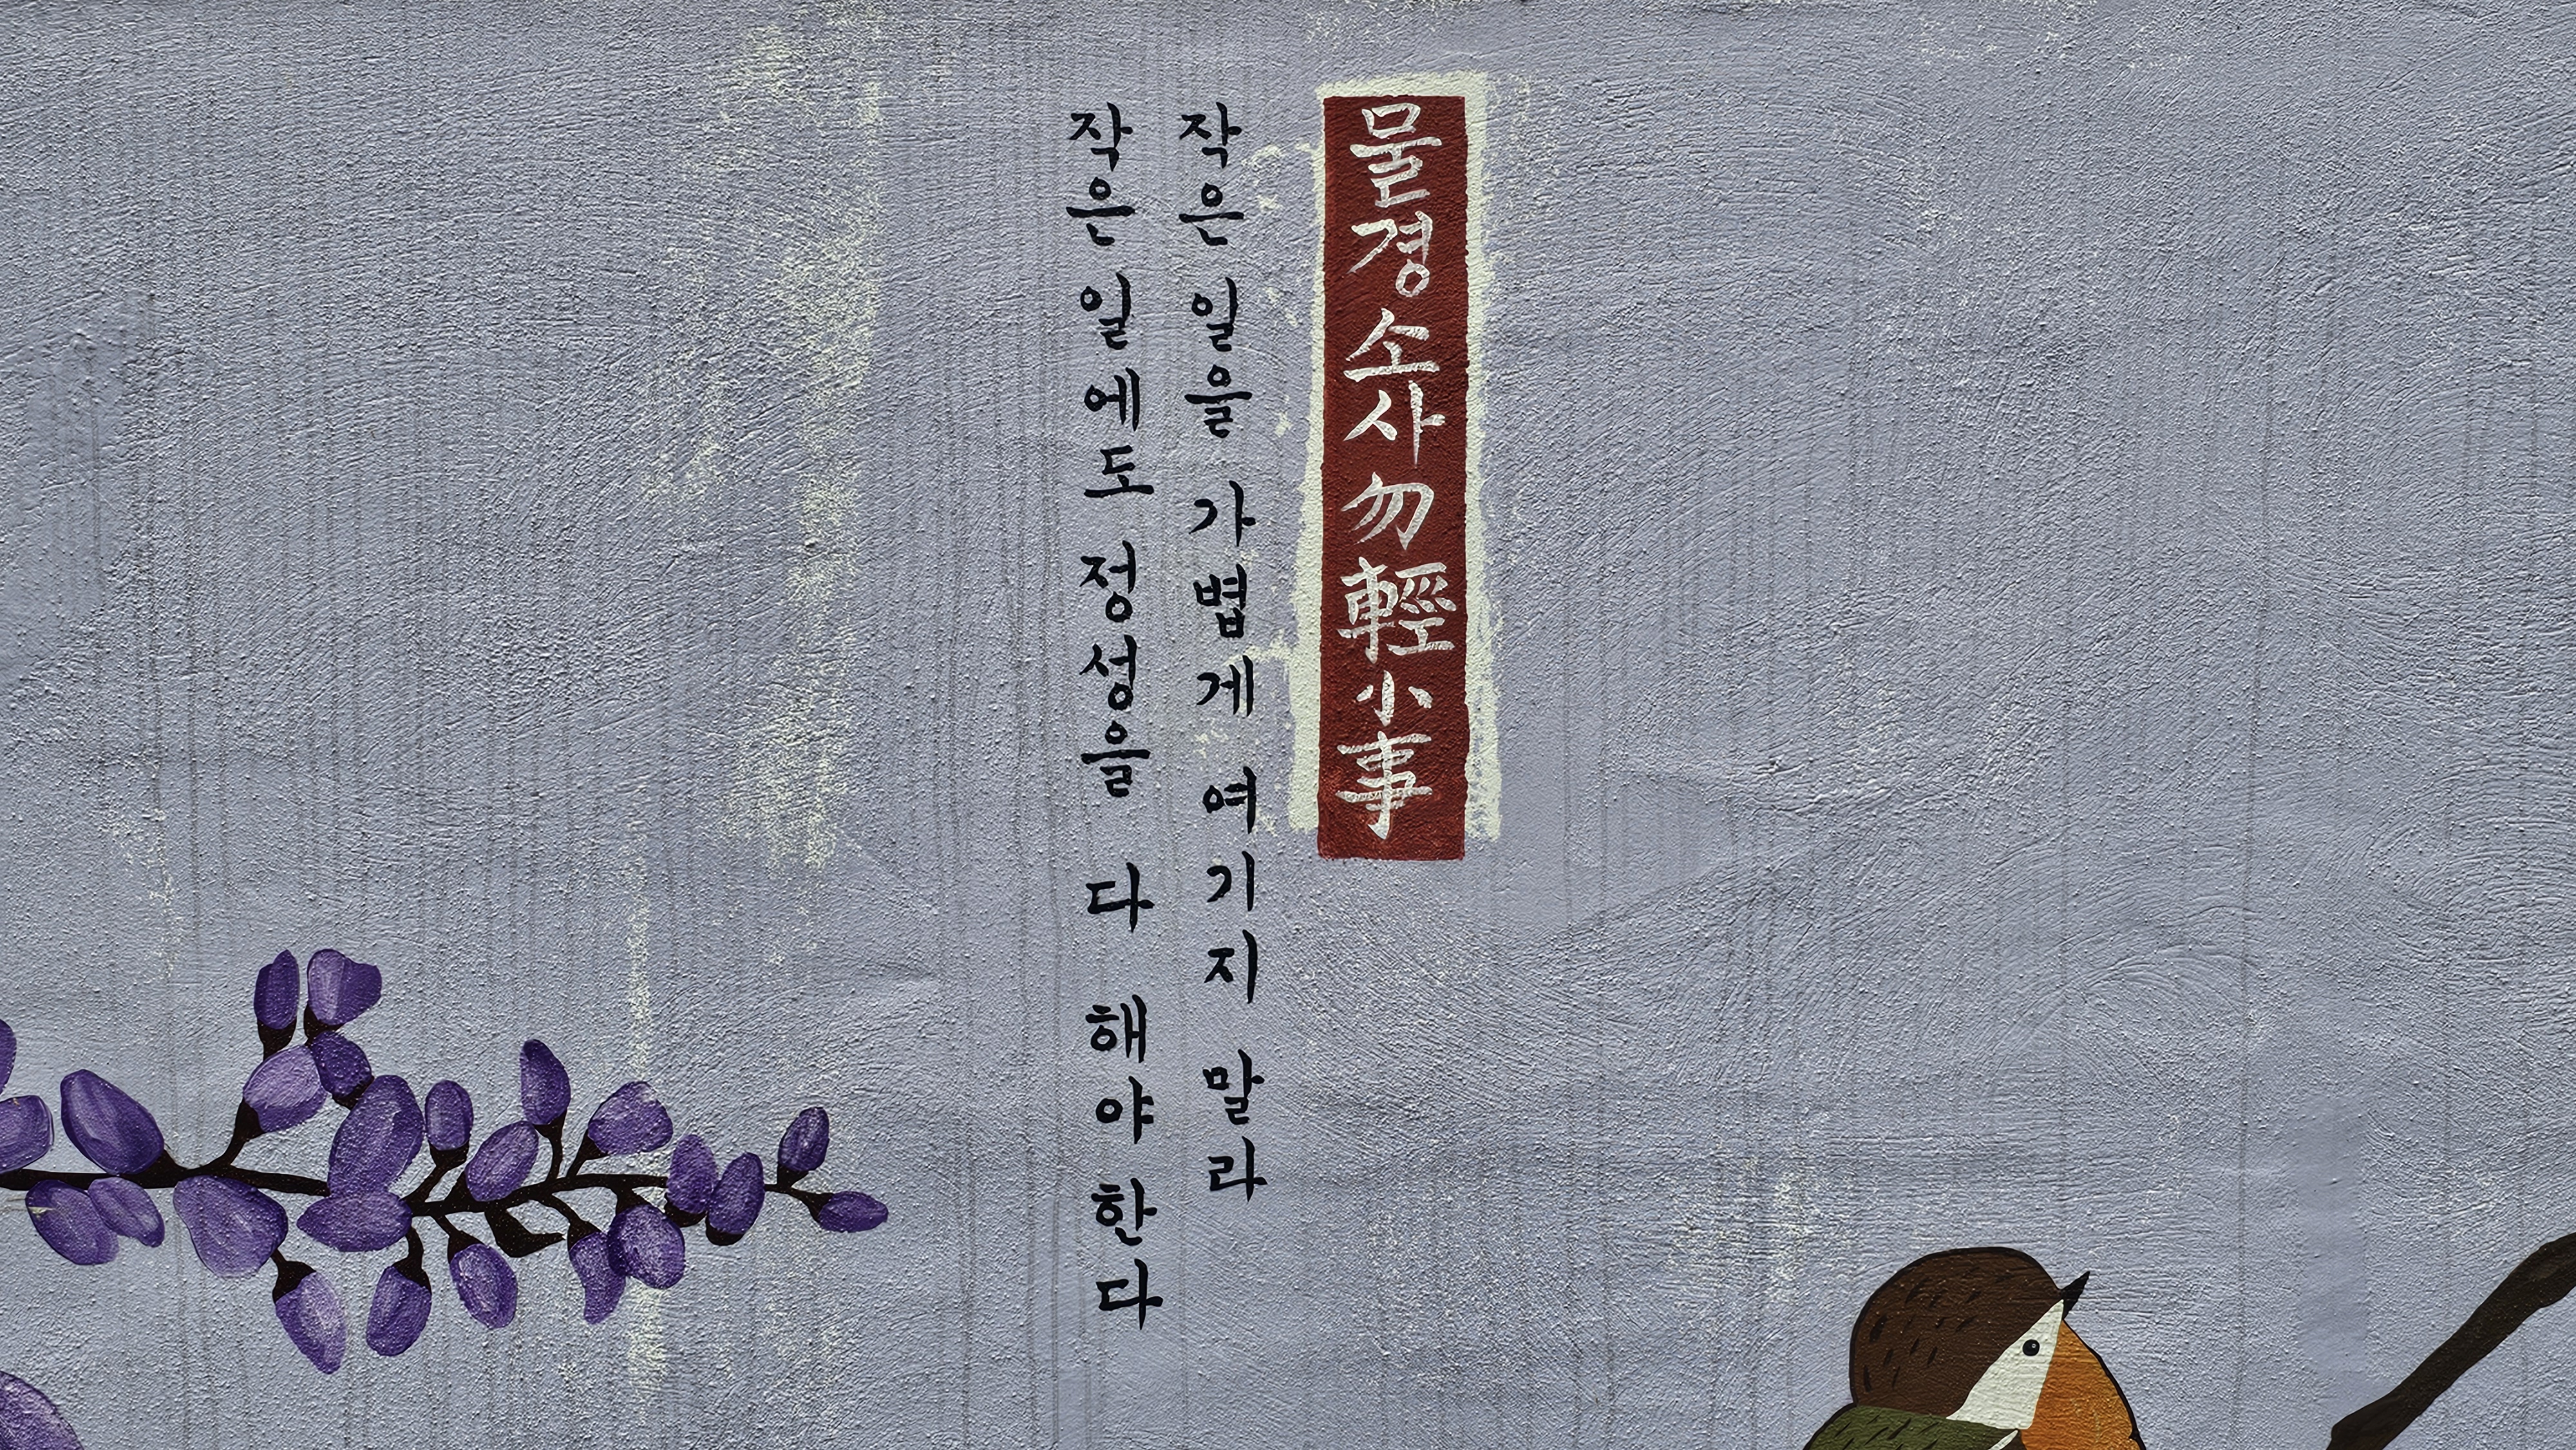 물경소사勿輕小事
작은 일을 가볍게 여기지 말라
작은 일에도 정성을 다 해야 한다